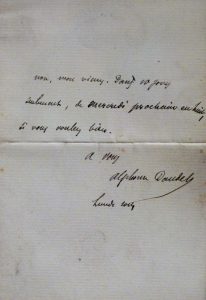 non, mon vieux. Dans 10 jours
seulement, de mercredi prochain en huit
si vous voulez bien.
a vous
Alphonse Daudet
Lundi soir